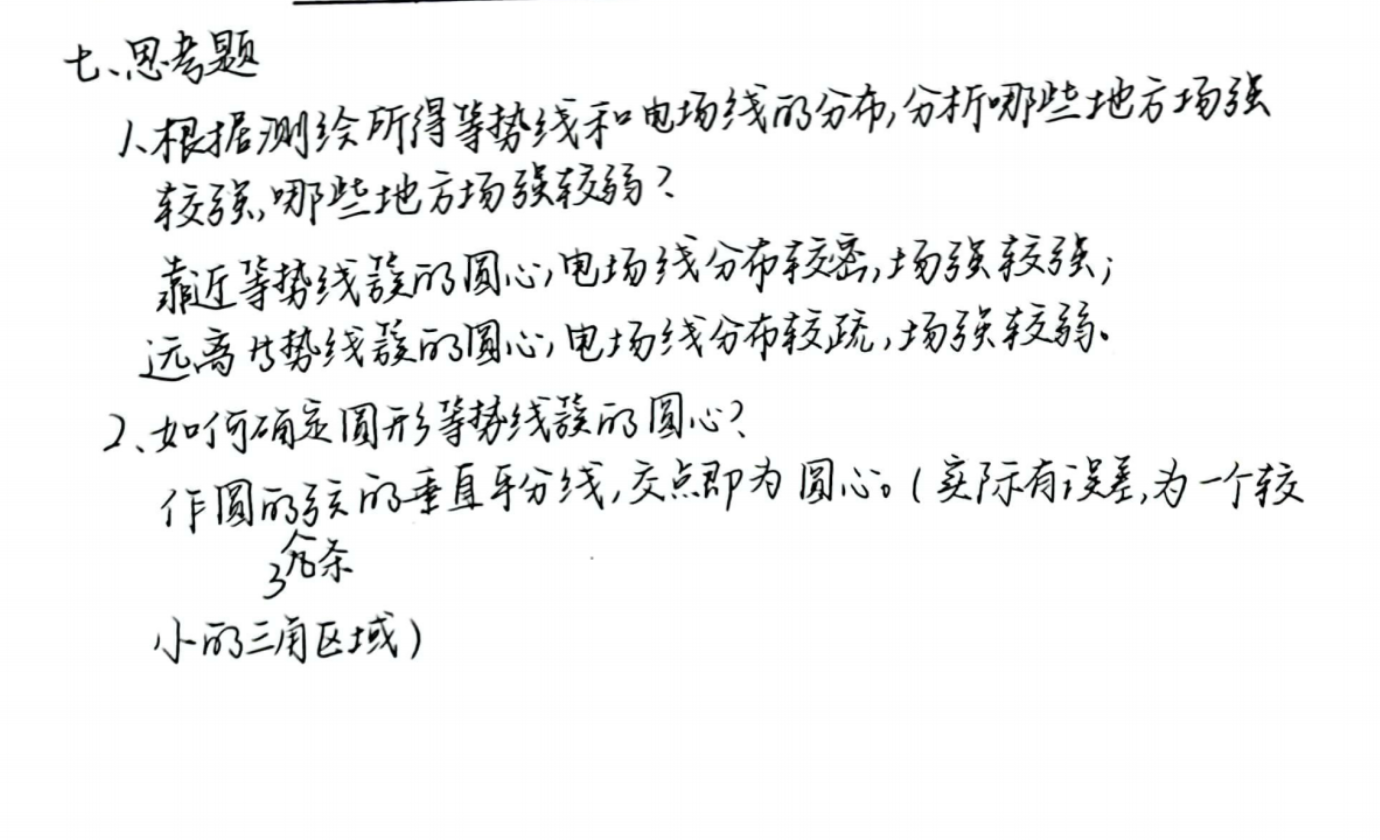 七、思考题
1、根据测绘所得等势线和电场线的分布,分析哪些地方场强
较强,哪些地方场强较弱?
靠近等势线簇的圆心,电场线分布较密,场强较强;
远离势线簇的圆心,电场线分布较疏,场强较弱。
2、如何确定圆形等势线簇的圆心?
作圆的弦的垂直平分线,交点即为圆心。(实际有误差,为一个较
3 条
小的三角区域)